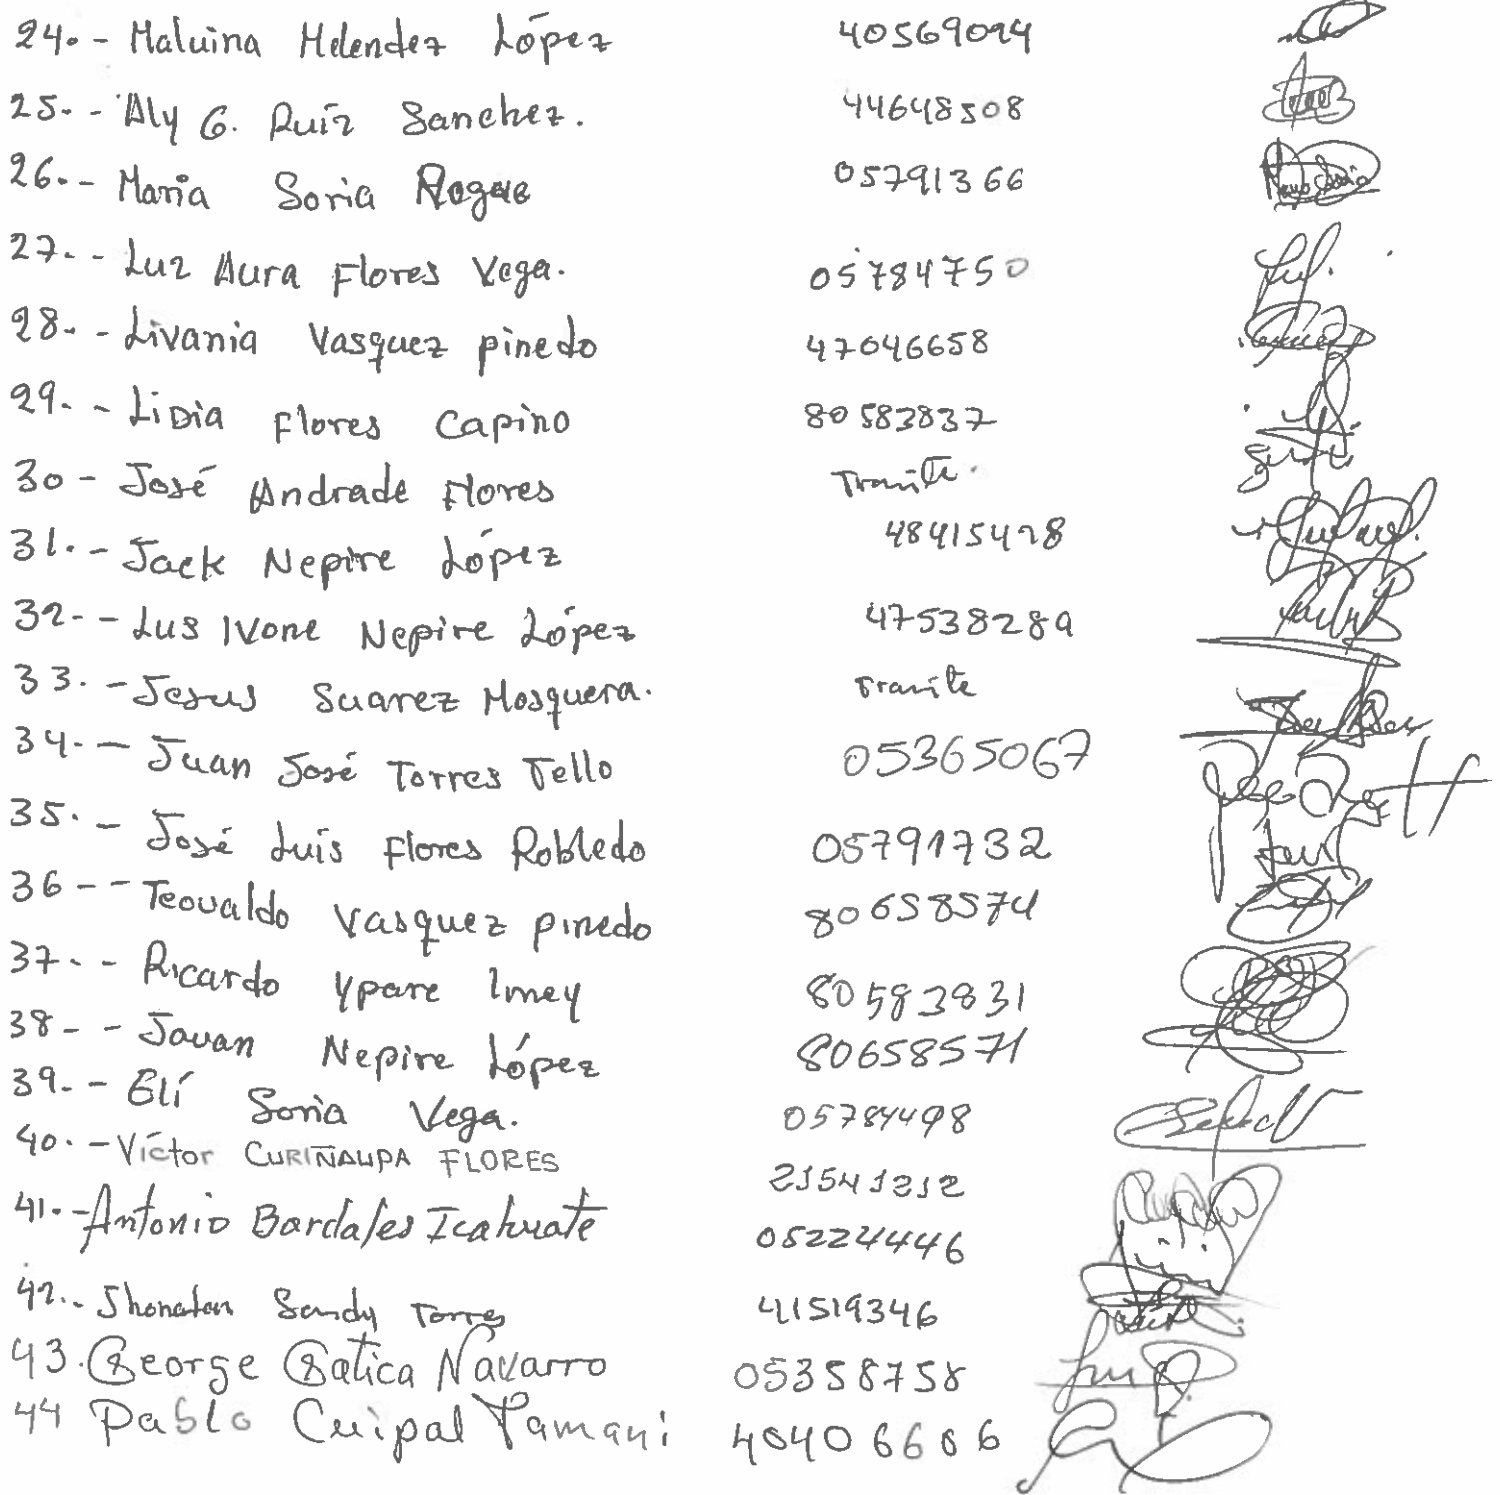 24.- Maluina Melendez López 40569094
25.- Aly G. Ruíz Sanchez. 44648508
26.- Maria Soria Roque 05791366
27.- Luz Aura Flores Vega. 05784750
28.- Livania Vasquez pinedo 47046658
29.- Lidia Flores Capino 80583837
30- José Andrade Flores Tramite.
31.- Jack Nepire López 48415428
32.- Lus Ivone Nepire López 47538289
33.- Jesus Suarez Mosquera. Tramite
34.- Juan José Torres Tello 05365067
35.- José Luis Flores Robledo 05791732
36-- Teovaldo Vasquez pinedo 80658574
37.- Ricardo Ypare Imey 80583831
38-- Jovan Nepire López 80658571
39.- Elí Soria Vega. 05784498
40.- Víctor CURIÑAUPA FLORES 21541212
41.- Antonio Bardales Icahuate 05224446
42.- Jhonatan Sandy Torres 41519346
43. George Gatica Navarro 05358758
44 Pablo Cuipal Tamani 40406606